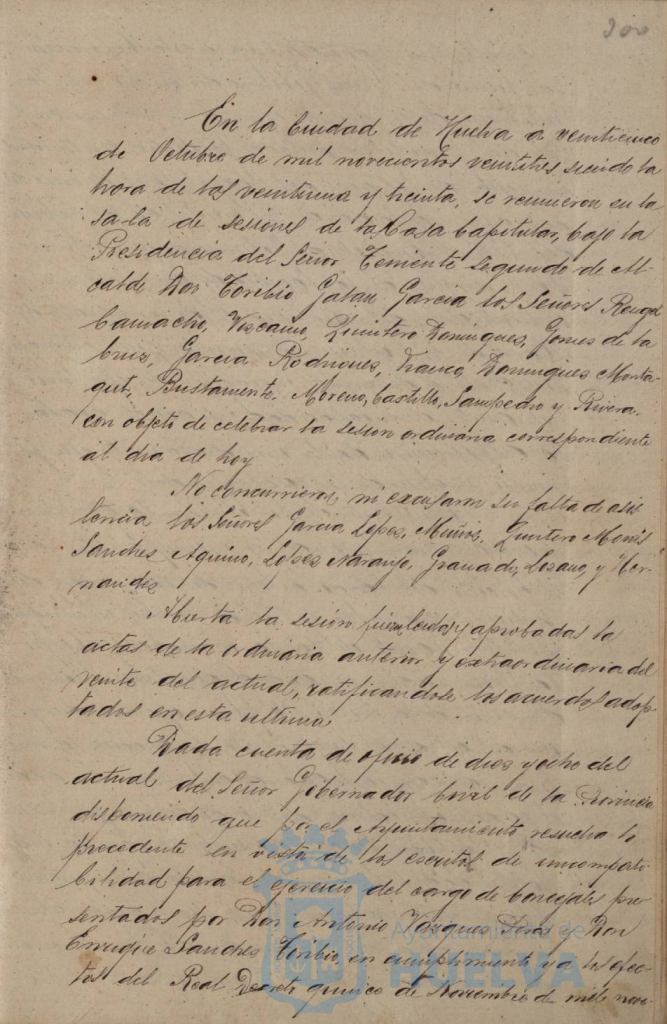 200
En la Ciudad de Huelva á veinticinco
de Octubre de mil novecientos veintitres siendo la
hora de las veintiuna y treinta, se reunieron en la
sala de sesiones de la Casa Capitular, bajo la
Presidencia del Señor Teniente segundo de Al
calde Don Toribio Galan Garcia los Señores Rengel
Camacho, Viscaino, Quintero Domingues, Gomes de la
Cruz, Garcia Rodrigues, Franco, Domingues Monta-
gut, Bustamente, Moreno, Castillo, Sampedro y Rivera.
con objeto de celebrar la sesion ordinaria correspondiente
al dia de hoy
No concurrieron ni excusaron su falta de asis
tencia los Señores Garcia Lopes, Muñis, Quintero Monis
Sanches Aquino, Lopes Naranjo, Granado, Lozano, y Her-
nandes
Abierta la sesion fueron leidas y aprobadas la
actas de la ordinaria anterior y extraordinaria del
veinte del actual, ratificandose los acuerdos adop-
tados en esta ultima
Dada cuenta de oficio de dies y ocho del
actual del Señor Gobernador Civil de la Provincia
disponiendo que por el Ayuntamiento resuelva lo
procedente en vista de los escritos de incompati
bilidad para el ejercicio del cargo de Concejales pre
sentados por Don Antonio Vasques y Don
Enrique Sanches Toribio, en cumplimiento y a los efec-
tos del Real Decreto quince de Noviembre de mil nove-
Ayuntamiento de
HUELVA